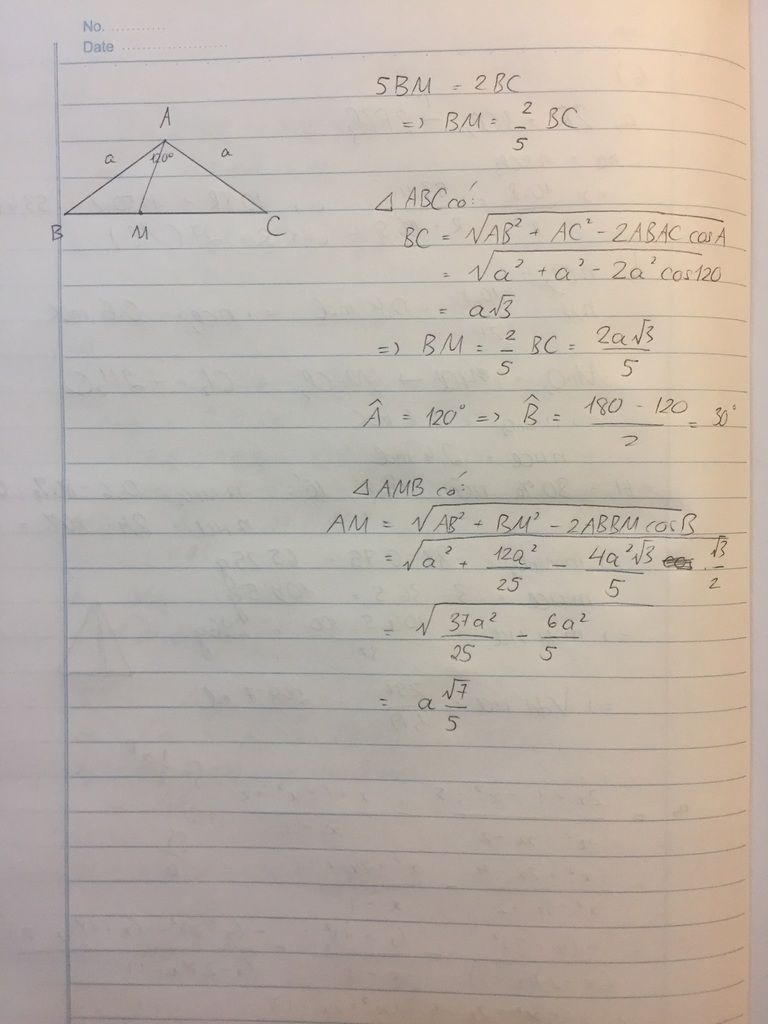 No. ............
Date ........................
5BM = 2BC
=> BM = 2/5 BC
A
a 120° a
B M C
△ABC có:
BC = √(AB² + AC² - 2ABAC cosA)
= √(a² + a² - 2a² cos120)
= a√3
=> BM = 2/5 BC = 2a√3/5
Â = 120° => B̂ = (180 - 120)/2 = 30°
△AMB có:
AM = √(AB² + BM² - 2ABBM cosB)
= √(a² + 12a²/25 - 4a²√3/5 . √3/2)
= √(37a²/25 - 6a²/5)
= a √7/5